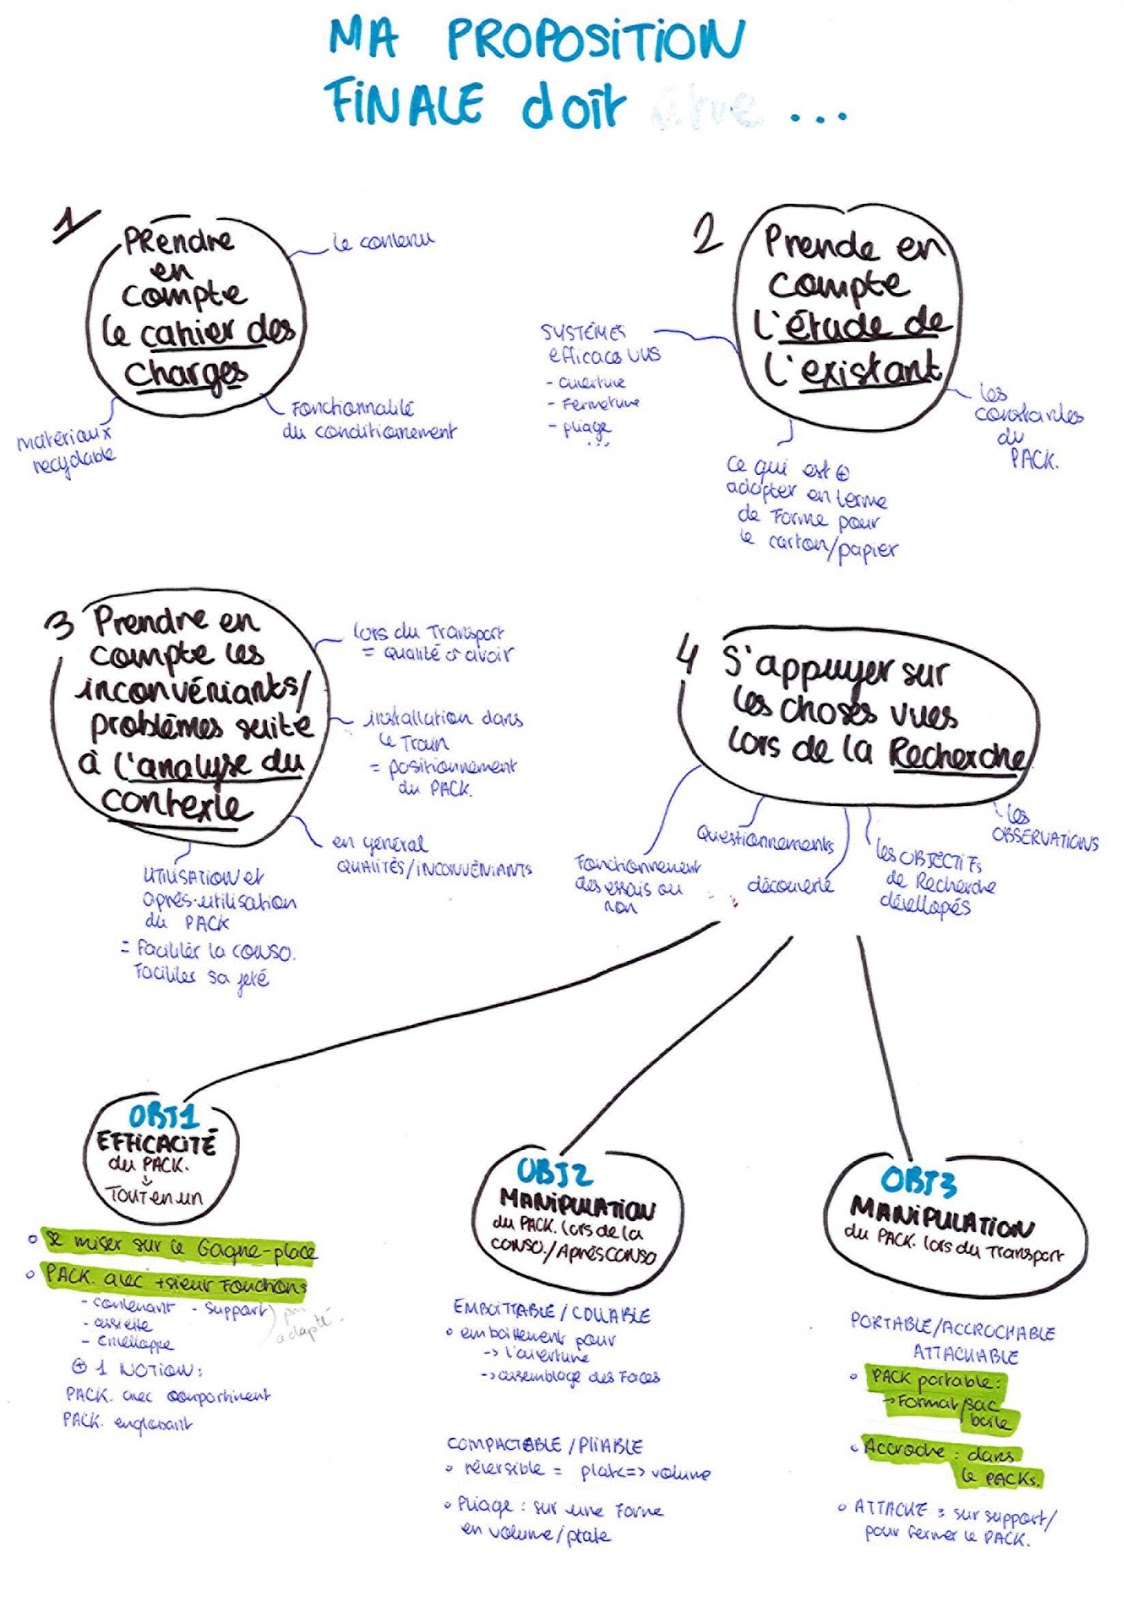 MA PROPOSITION
FINALE doit être ...
1
PRendre
en
compte
le cahier des
charges
le contenu
Fonctionnalité
du conditionnement
matériaux
recyclable
2
Prende en
compte
l'étude de
l'existant
SYSTÈMES
efficaces VUS
- ouverture
- Fermeture
- pliage
...
Ce qui est ⊕
adopter en terme
de Forme pour
le carton/papier
les
constantes
du
PACK.
3 Prendre en
compte les
inconvéniants/
problèmes suite
à l'analyse du
contexte
lors du Transport
= qualité à avoir
installation dans
le Train
= positionnement
du PACK.
en général
QUALITÉS/INCONVÉNIANTS
UTILISATION et
après-utilisation
du PACK
= Faciliter la CONSO.
Faciliter sa jeté
4 S'appuyer sur
les choses vues
lors de la Recherche
Fonctionnement
des essais ou
non
Questionnements
découverte
les OBJECTIFS
de Recherche
développés
les
OBSERVATIONS
OBJ1
EFFICACITÉ
du PACK.
↓
TOUT en un
o se miser sur le Gagne-place
o PACK. avec +sieur Fonctions
- contenant - support) pas
adapté.
- assiette
- enveloppe
⊕ 1 NOTION:
PACK. avec compartiment
PACK. englobant
OBJ2
MANIPULATION
du PACK. lors de la
CONSO./APRÉS CONSO
EMBOITTABLE / COLLABLE
o emboitement pour
-> l'ouverture
-> assemblage des Faces
COMPACTABLE / PLIABLE
o réversible = plate => volume
o Pliage : sur une Forme
en volume/plate
OBJ3
MANIPULATION
du PACK. lors du Transport
PORTABLE/ACCROCHABLE
ATTACHABLE
o PACK portable:
→ Format sac
boite
o Accroche : dans
le PACKs.
o ATTACHE : sur support/
pour fermer le PACK.